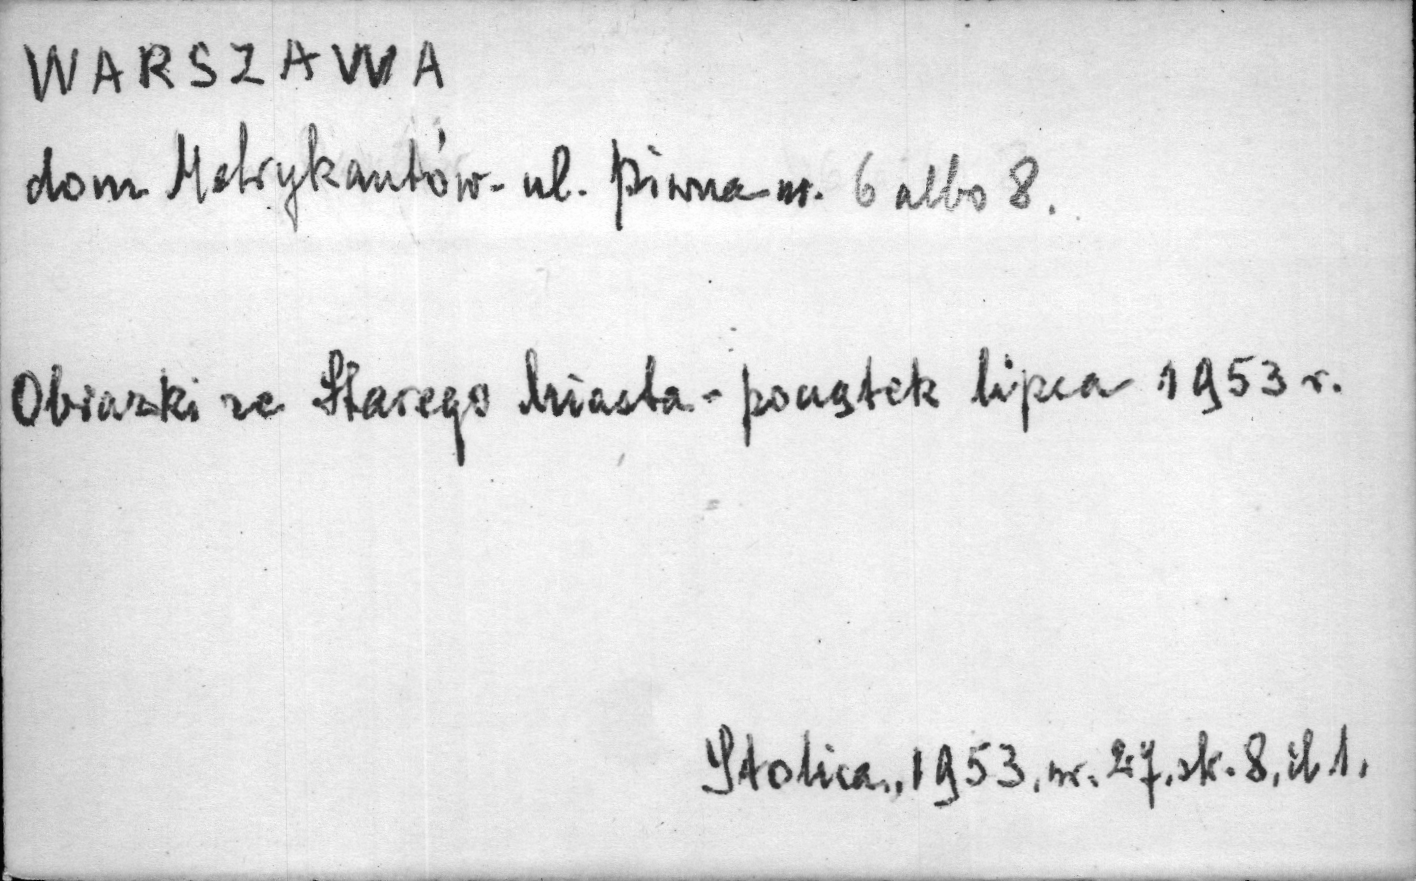 WARSZAWA
dom Metrykantów - ul. Piwna nr. 6 albo 8.
Obrazki ze Starego Miasta - początek lipca 1953 r.
Stolica, 1953, nr. 27, sk. 8, il 1.